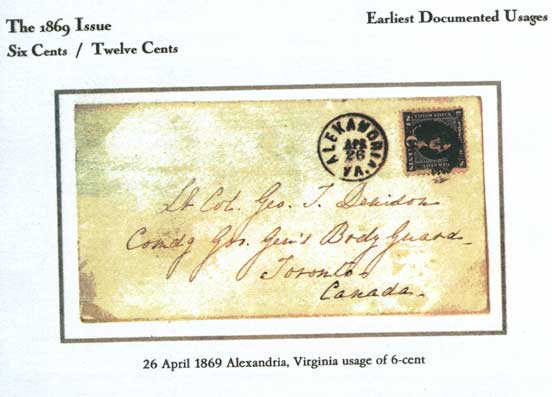 The 1869 Issue
Six Cents / Twelve Cents
Earliest Documented Usages
ALEXANDRIA
APR
26
VA.
Lt Col. Geo. T. Denison
Comdg Gov. Gen's Body Guard
Toronto
Canada
26 April 1869 Alexandria, Virginia usage of 6-cent